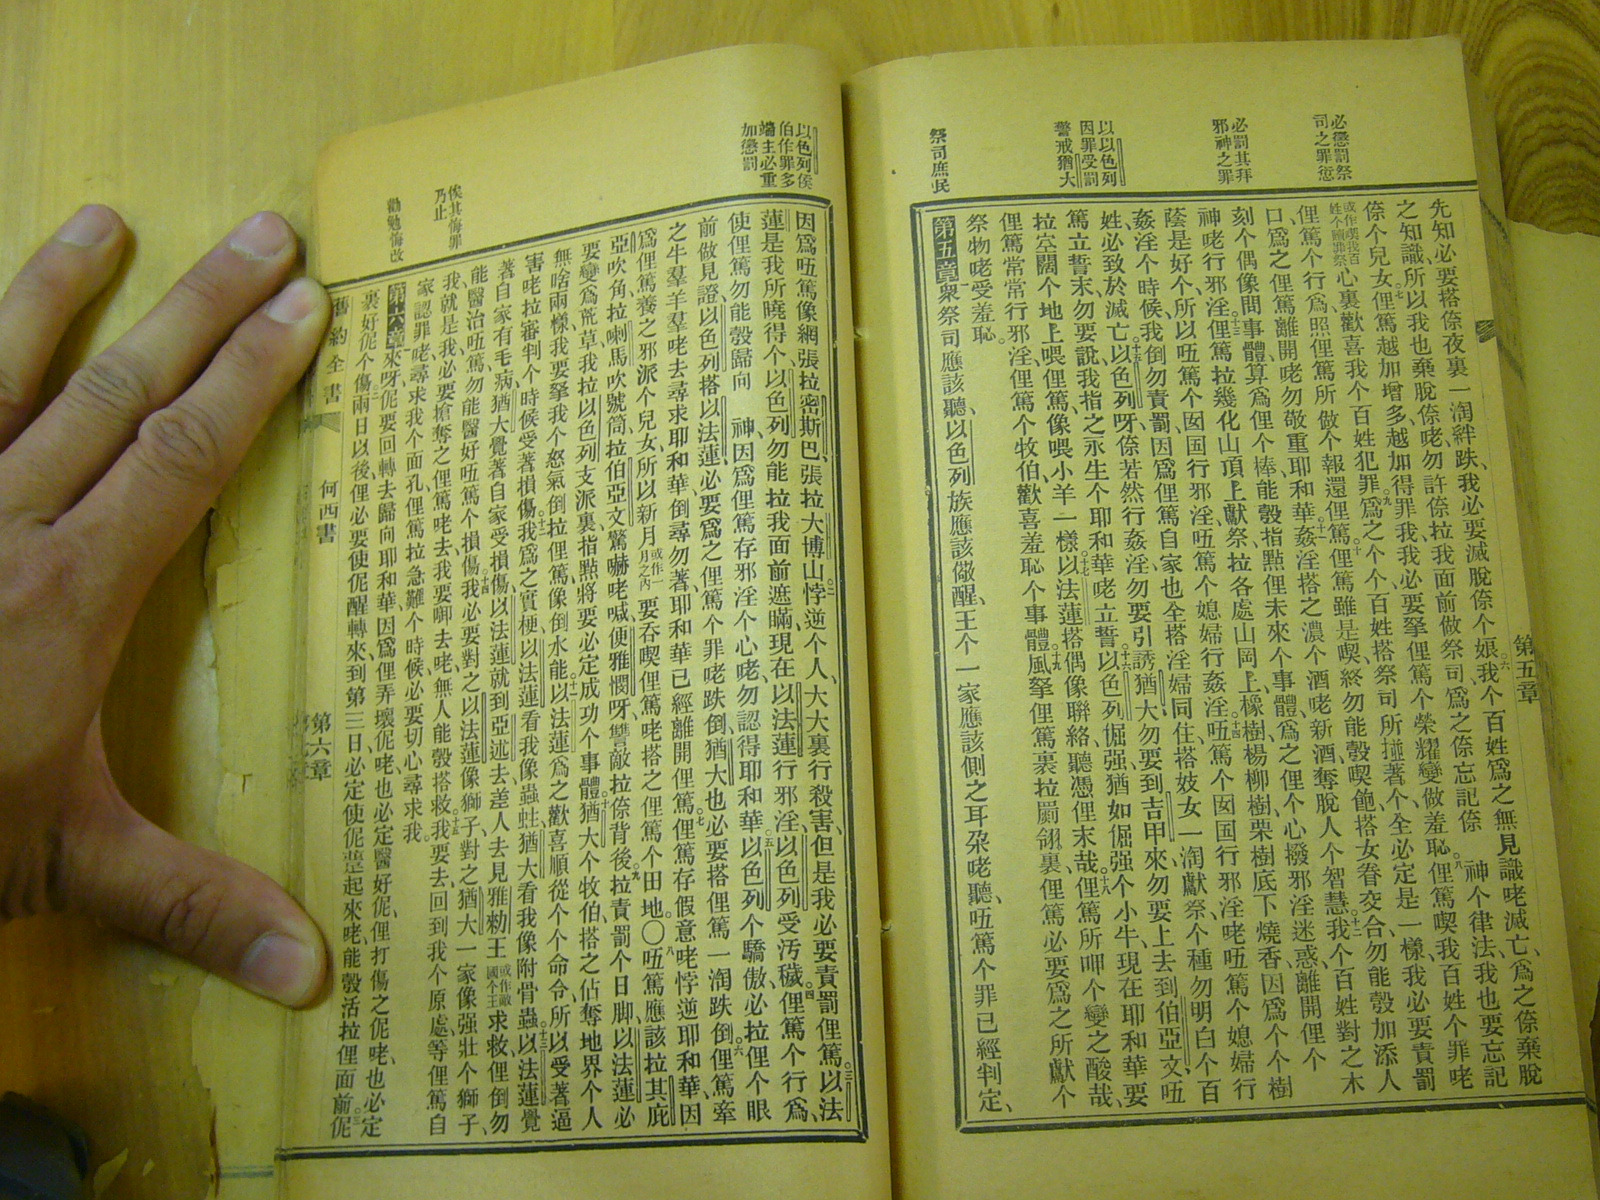 必懲罰祭
司之罪愆
必罰其拜
邪神之罪
以以色列
因罪受罰
警戒猶大
祭司庶民
第五章
先知必要搭倷夜裏一淘絆跌、我必要滅脫倷个娘、我个百姓爲之無見識咾滅亡、爲之倷棄脫
之知識、所以我也棄脫倷咾、勿許倷拉我面前做祭司、爲之倷忘記倷 神个律法、我也要忘記
倷个兒女、俚篤越加增多、越加得罪我、我必要拏俚篤个榮耀、變做羞恥、俚篤喫我百姓个罪咾
心裏歡喜我个百姓犯罪、爲之个个百姓搭祭司所碰著个、全必定是一樣、我必要責罰
俚篤个行爲、照俚篤所做个報還俚篤、俚篤雖是喫、終勿能彀喫飽、搭女眷交合、勿能彀加添人
口、爲之俚篤離開咾勿敬重耶和華、姦淫搭之濃个酒咾新酒、奪脫人个智慧、我个百姓對之木
刻个偶像問事體、算爲俚个棒、能彀指點俚未來个事體、爲之俚个心撥邪淫迷惑、離開俚个
神咾行邪淫、俚篤拉幾化山頂上獻祭、拉各處山岡上橡樹楊柳樹栗樹底下燒香、因爲个个樹
蔭是好个、所以㑚篤个囡囝行邪淫、㑚篤个媳婦行姦淫、㑚篤个囡囝行邪淫咾、㑚篤个媳婦行
姦淫个時候、我倒勿責罰、因爲俚篤自家也全搭淫婦同住、搭妓女一淘獻祭、个種勿明白个百
姓、必致於滅亡、以色列呀、倷若然行姦淫、勿要引誘猶大、勿要到吉甲來、勿要上去到伯亞文、㑚
篤立誓末、勿要說、我指之永生个耶和華咾立誓、以色列倔强、猶如倔强个小牛、現在耶和華要
拉空闊个地上喂俚篤、像喂小羊一樣、以法蓮搭偶像聯絡、聽憑俚末哉、俚篤所呷个變之酸哉、
俚篤常常行邪淫、俚篤个牧伯、歡喜羞恥个事體、風拏俚篤裏拉翩翎裏、俚篤必要爲之所獻个
祭物咾受羞恥、
第五章 衆祭司應該聽、以色列族應該儆醒、王个一家應該側之耳朶咾聽、㑚篤个罪已經判定、
以色列侯
伯作罪多
端主必重
加懲罰
俟其悔罪
乃止
勸勉悔改
因爲㑚篤像網張拉密斯巴、張拉大博山、悖逆个人、大大裏行殺害、但是我必要責罰俚篤、以法
蓮是我所曉得个、以色列勿能拉我面前遮瞞、現在以法蓮行邪淫、以色列受汚穢、俚篤个行爲、
使俚篤勿能彀歸向 神、因爲俚篤存邪淫个心咾、勿認得耶和華、以色列个驕傲、必拉俚个眼
前做見證、以色列搭以法蓮、必要爲之俚篤个罪咾跌倒、猶大也必要搭俚篤一淘跌倒、俚篤牽
之牛羣羊羣、咾去尋求耶和華、倒尋勿著、耶和華已經離開俚篤、俚篤存假意咾、悖逆耶和華、因
爲俚篤養之邪派个兒女、所以新月或作一月之內要吞喫俚篤咾、搭之俚篤个田地、〇㑚篤應該拉其庇
亞吹角、拉喇馬吹號筒、拉伯亞文驚嚇咾喊、便雅憫呀、讐敵拉倷背後、拉責罰个日脚、以法蓮必
要變爲荒草、我拉以色列支派裏、指點將要必定成功个事體、猶大个牧伯、搭之佔奪地界个人
無啥兩樣、我要拏我个怒氣、倒拉俚篤、像倒水能、以法蓮爲之歡喜順從个个命令、所以受著逼
害咾、拉審判个時候、受著損傷、我爲之實梗、以法蓮看我像蟲蛀、猶大看我像附骨蟲、以法蓮覺
著自家有毛病、猶大覺著自家受損傷、以法蓮就到亞述去、差人去見雅勒王或作敵國个王求救、俚倒勿
能醫治㑚篤、勿能醫好㑚篤个損傷、我必要對之以法蓮像獅子、對之猶大一家像强壯个獅子、
我就是我、必要搶奪之俚篤咾去、我要啣去咾、無人能彀搭救、我要去回到我个原處、等俚篤自
家認罪咾、尋求我个面孔、俚篤拉急難个時候、必要切心尋求我、
第六章 來呀、伲要回轉去歸向耶和華、因爲俚弄壞伲咾、也必定醫好伲、俚打傷之伲咾、也必定
裹好伲个傷、兩日以後、俚必要使伲醒轉來、到第三日、必定使伲豎起來咾、能彀活拉俚面前、伲
舊約全書
何西書
第六章